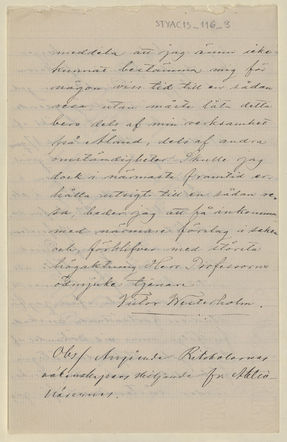 STYAC15_116_3
meddela att jag ännu icke
kunnat bestämma mig för
någon viss tid till en sådan
resa, utan måste låta detta
bero dels af min verksamhet
på Åland, dels af andra
omständigheter. Skulle jag
dock i närmaste framtid er-
hålla utsigt till en sådan re-
sa, beder jag att få inkomma
med närmare förslag i saken
och förblifver med största
högaktning Herr Professorns
ödmjuke tjenare
Victor Westerholm.
Obs! Angående Ritskolornas
fr. Åbo